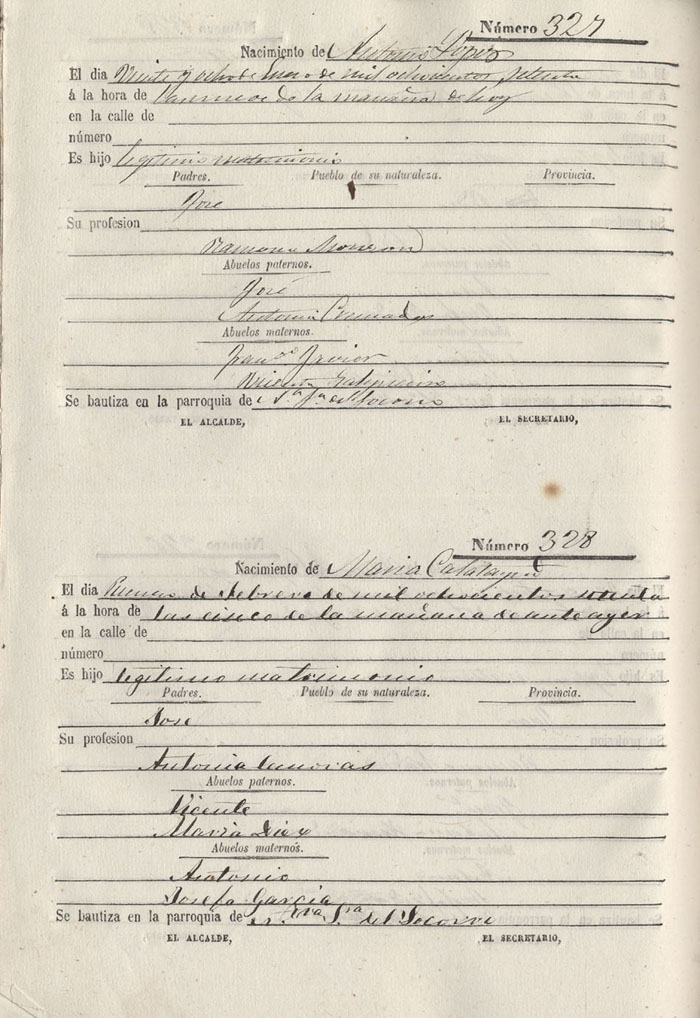 Número 327
Nacimiento de Antonio Lopez
El dia Veinte y ocho de Enero de mil ochocientos setenta
á la hora de las nueve de la mañana de hoy
en la calle de
número
Es hijo legitimo matrimonio
Padres. Pueblo de su naturaleza. Provincia.
José
Su profesion
Ramona Monzon
Abuelos paternos.
José
Antonia
Abuelos maternos.
Franco Javier
Vicenta
Se bautiza en la parroquia de N. Sra del Socorro
EL ALCALDE, EL SECRETARIO,
Número 328
Nacimiento de Maria Calatayud
El dia Primero de Febrero de mil ochocientos setenta
á la hora de las cinco de la mañana de anteayer
en la calle de
número
Es hijo legitimo matrimonio
Padres. Pueblo de su naturaleza. Provincia.
José
Su profesion
Antonia Canovas
Abuelos paternos.
Vicente
Maria Diez
Abuelos maternos.
Antonio
Josefa Garcia
Se bautiza en la parroquia de Ntra Sra del Socorro
EL ALCALDE, EL SECRETARIO,